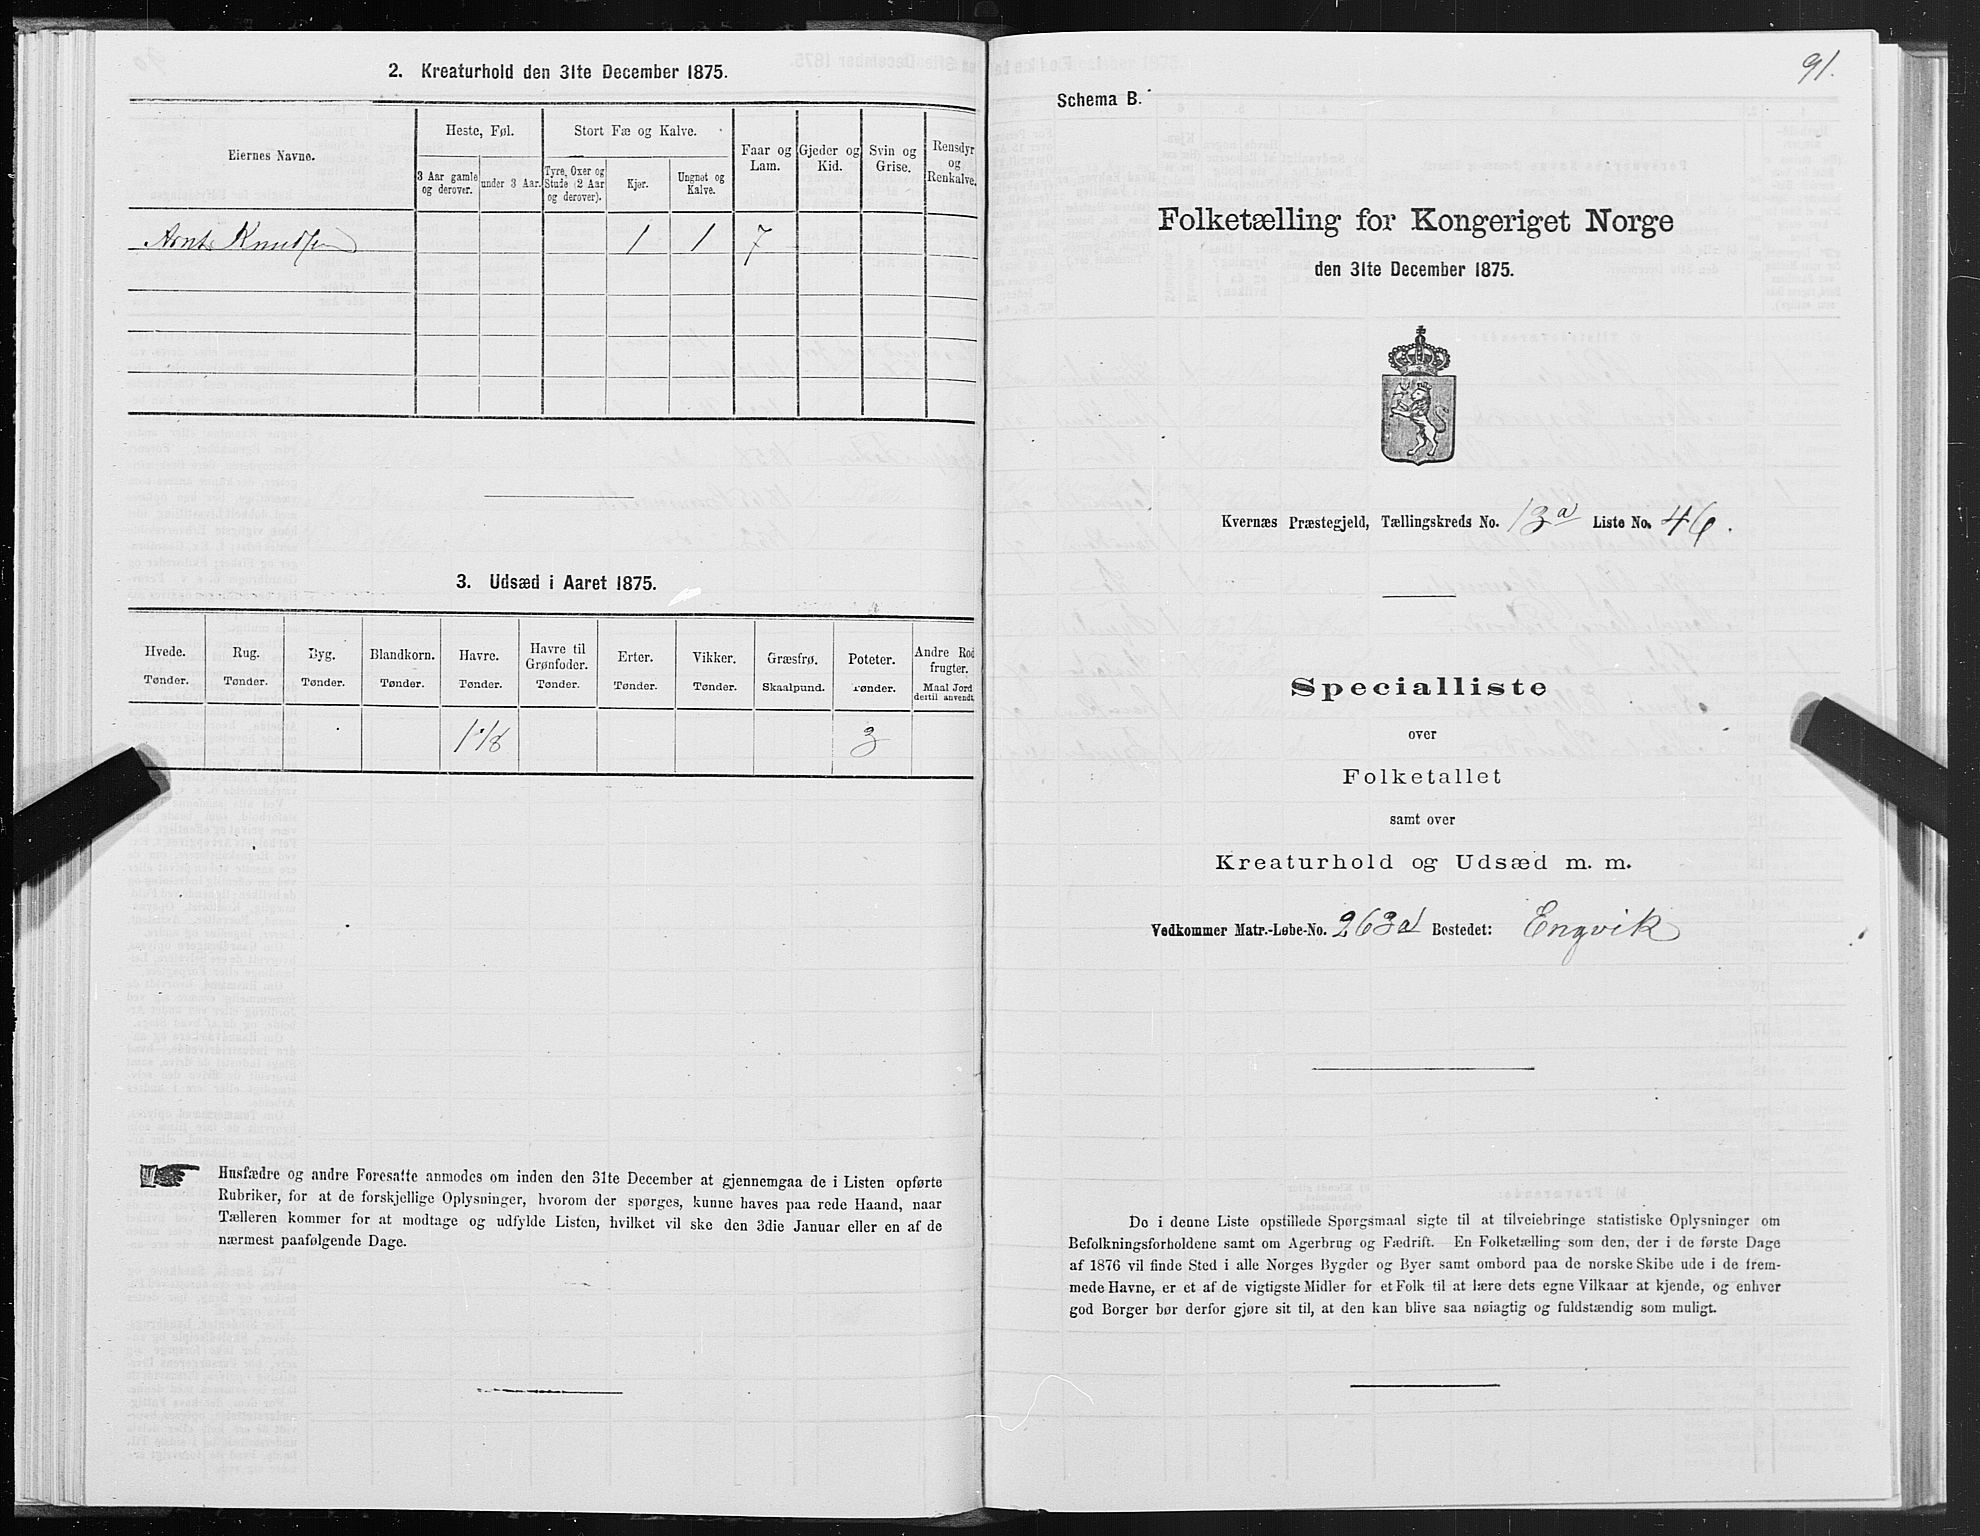 2. Kreaturhold den 31te December 1875.
Eiernes Navne.
Heste, Føl.
Stort Fæ og Kalve.
Faar og Lam.
Gjeder og Kid.
Svin og Grise.
Rensdyr og Renkalve.
3 Aar gamle og derover.
under 3 Aar.
Tyre, Oxer og Stude (2 Aar og derover).
Kjør.
Ungnøt og Kalve.
Arnt Knudsen 1 1 7
3. Udsæd i Aaret 1875.
Hvede. Rug. Byg. Blandkorn. Havre. Havre til Grønfoder. Erter. Vikker. Græsfrø. Poteter. Andre Rodfrugter.
Tønder. Tønder. Tønder. Tønder. Tønder. Tønder. Tønder. Tønder. Skaalpund. Tønder. Maal Jord dertil anvendt.
1 1/8 3
Husfædre og andre Foresatte anmodes om inden den 31te December at gjennemgaa de i Listen opførte
Rubriker, for at de forskjellige Oplysninger, hvorom der spørges, kunne haves paa rede Haand, naar
Tælleren kommer for at modtage og udfylde Listen, hvilket vil ske den 3die Januar eller en af de
nærmest paafølgende Dage.
91.
Schema B.
Folketælling for Kongeriget Norge
den 31te December 1875.
Kvernæs Præstegjeld, Tællingskreds No. 13a Liste No. 46.
Specialliste
over
Folketallet
samt over
Kreaturhold og Udsæd m. m.
Vedkommer Matr.-Løbe-No. 263a Bostedet: Engvik
De i denne Liste opstillede Spørgsmaal sigte til at tilveiebringe statistiske Oplysninger om
Befolkningsforholdene samt om Agerbrug og Fædrift. En Folketælling som den, der i de første Dage
af 1876 vil finde Sted i alle Norges Bygder og Byer samt ombord paa de norske Skibe ude i de frem-
mede Havne, er et af de vigtigste Midler for et Folk til at lære dets egne Vilkaar at kjende, og enhver
god Borger bør derfor gjøre sit til, at den kan blive saa nøiagtig og fuldstændig som muligt.